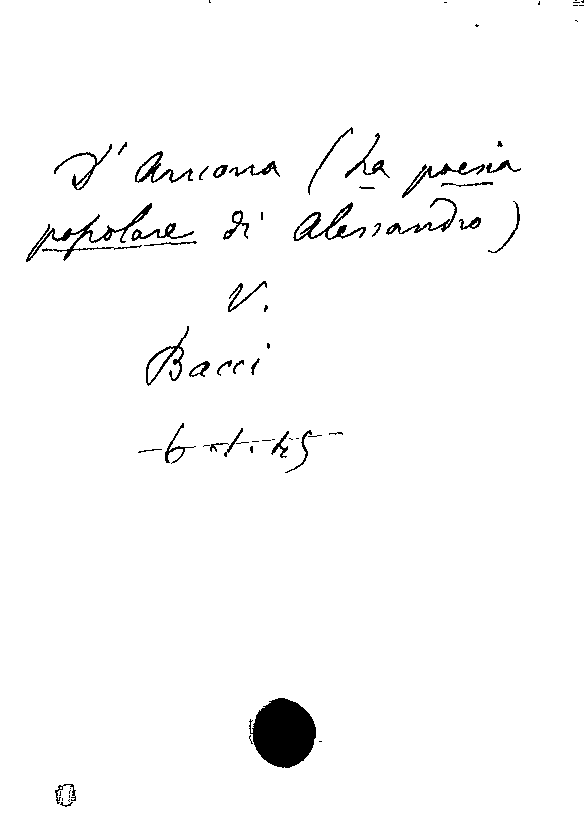 D'Ancona (La poesia
popolare di Alessandro)
V.
Bacci
6.1.45